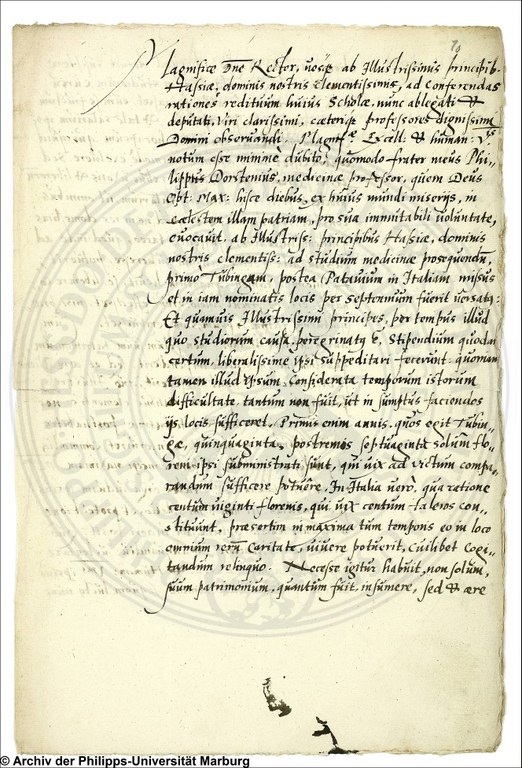 70
Magnifice Dne Rector, vosque ab Illustrissimis principib.
Hassiae, dominis nostris clementissimis, ad Conferendas
rationes redituum huius Scholae, nunc ablegati et
deputati, viri clarissimi, caeterique professores dignissimi
Domini observandi. Magnif. Excell. et human: Vs
notum esse minime dubito, quomodo frater meus Phi-
lippus Dorstenius, medicinae professor, quem Deus
Opt: Max: hisce diebus, ex huius mundi miserijs, in
caelestem illam patriam, pro sua immutabili voluntate,
evocavit, ab Illustriss: principibus Hassiae, dominis
nostris clementiss: ad studium medicinae prosequendum,
primo Tubingam, postea Patavium in Italiam missus
et in iam nominatis locis per Septennium fuerit versatq:
Et quamvis Illustrissimi principes, per tempus illud
quo studiorum causa peregrinatq e, Stipendium quodda
certum, liberalissime ipsi suppeditari fecerunt: quoniam
tamen illud ipsum, Considerata temporum istorum
difficultate, tantum non fuit, ut in sumptus faciendos
ijs locis sufficeret. Primis enim annis, quos egit Tubin-
gae, quinquaginta, postremis septuaginta solum flo-
reni ipsi subministrati sunt, qui vix ad victum compa-
randum sufficere potuere. In Italia vero, qua ratione
centum viginti florenis, qui vix centum taleros con-
stituunt, praesertim in maxima tum temporis eo in loco
omnium rerum Caritate, vivere potuerit, Cuilibet Cogi-
tandum relinquo. Necesse igitur habuit, non solum,
suum patrimonium, quantum fuit, insumere, sed et aere
© Archiv der Philipps-Universität Marburg